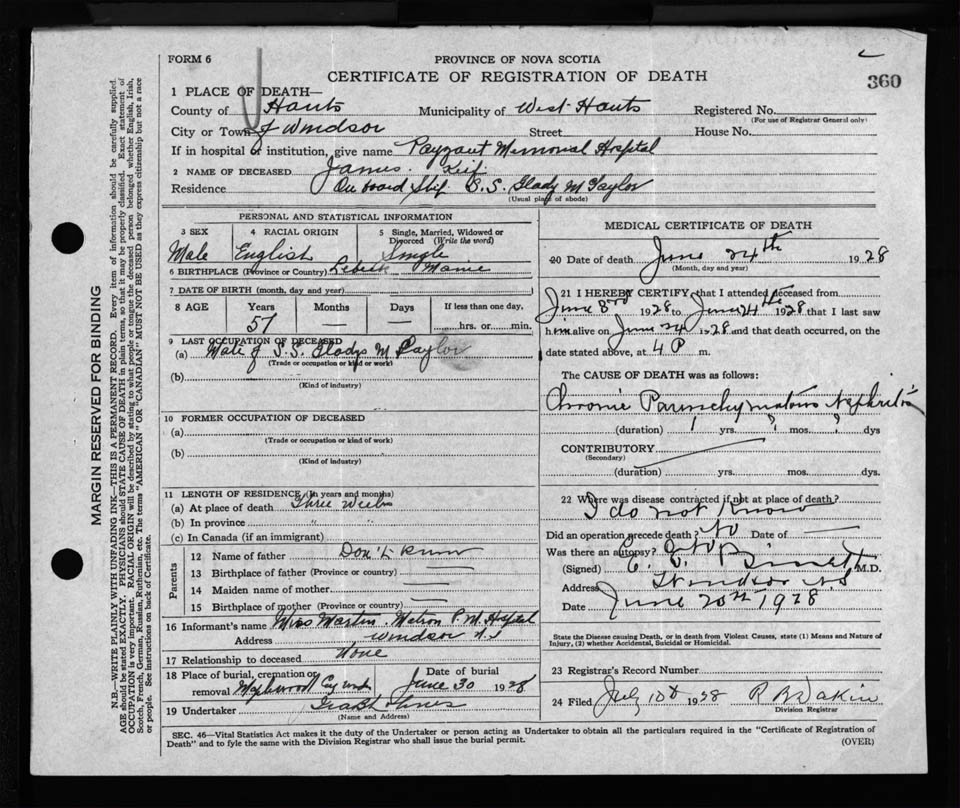 FORM 6
PROVINCE OF NOVA SCOTIA
CERTIFICATE OF REGISTRATION OF DEATH
360
1 PLACE OF DEATH—
County of Hants Municipality of West Hants Registered No.
(For use of Registrar General only)
City or Town of Windsor Street House No.
If in hospital or institution, give name Payzant Memorial Hospital
2 NAME OF DECEASED James Keif
Residence On board Ship S.S. Glady M Taylor
(Usual place of abode)
PERSONAL AND STATISTICAL INFORMATION
3 SEX 4 RACIAL ORIGIN 5 Single, Married, Widowed or Divorced (Write the word)
Male English Single
6 BIRTHPLACE (Province or Country) Maine
7 DATE OF BIRTH (month, day, and year)
8 AGE Years Months Days If less than one day,
57 — — hrs. or min.
9 LAST OCCUPATION OF DECEASED
(a) Mate of S.S. Gladys M Taylor
(Trade or occupation or kind of work)
(b)
(Kind of industry)
10 FORMER OCCUPATION OF DECEASED
(a)
(Trade or occupation or kind of work)
(b)
(Kind of industry)
11 LENGTH OF RESIDENCE (In years and months)
(a) At place of death Three Weeks
(b) In province " "
(c) In Canada (if an immigrant)
Parents
12 Name of father Don't Know
13 Birthplace of father (Province or country) —
14 Maiden name of mother —
15 Birthplace of mother (Province or country) —
16 Informant's name Miss Martin Matron P. M. Hospital
Address Windsor N.S
17 Relationship to deceased None
18 Place of burial, cremation or removal Maplewood Date of burial June 30 1928
19 Undertaker
(Name and Address)
MEDICAL CERTIFICATE OF DEATH
20 Date of death June 24th 1928
(Month, day and year)
21 I HEREBY CERTIFY, that I attended deceased from
June 3rd 1928 to June 24th 1928 that I last saw
him alive on June 24 1928 and that death occurred, on the
date stated above, at 4 P m.
The CAUSE OF DEATH was as follows:
Chronic Parenchymatous Nephritis
(duration) 1 yrs. ? mos. ? dys
CONTRIBUTORY
(Secondary)
(duration) yrs. mos. dys.
22 Where was disease contracted if not at place of death?
I do not know
Did an operation precede death? No Date of —
Was there an autopsy? No
(Signed) M.D.
Address Windsor NS
Date June 1928
State the Disease causing Death, or in death from Violent Causes, state (1) Means and Nature of
Injury, (2) whether Accidental, Suicidal or Homicidal.
23 Registrar's Record Number
24 Filed July 10th 1928
Division Registrar
SEC. 46—Vital Statistics Act makes it the duty of the Undertaker or person acting as Undertaker to obtain all the particulars required in the "Certificate of Registration of
Death" and to fyle the same with the Division Registrar who shall issue the burial permit. (OVER)
MARGIN RESERVED FOR BINDING
N.B.—WRITE PLAINLY WITH UNFADING INK—THIS IS A PERMANENT RECORD. Every item of information should be carefully supplied.
AGE should be stated EXACTLY. PHYSICIANS should STATE CAUSE OF DEATH in plain terms, so that it may be properly classified. Exact statement of
OCCUPATION is very important. RACIAL ORIGIN will be described by stating to what people or tongue the deceased person belonged whether English, Irish,
Scotch, French, German, Russian, Ruthenian, etc. The terms "AMERICAN" OR "CANADIAN" MUST NOT BE USED as they express citizenship but not a race
or people. See instructions on back of Certificate.